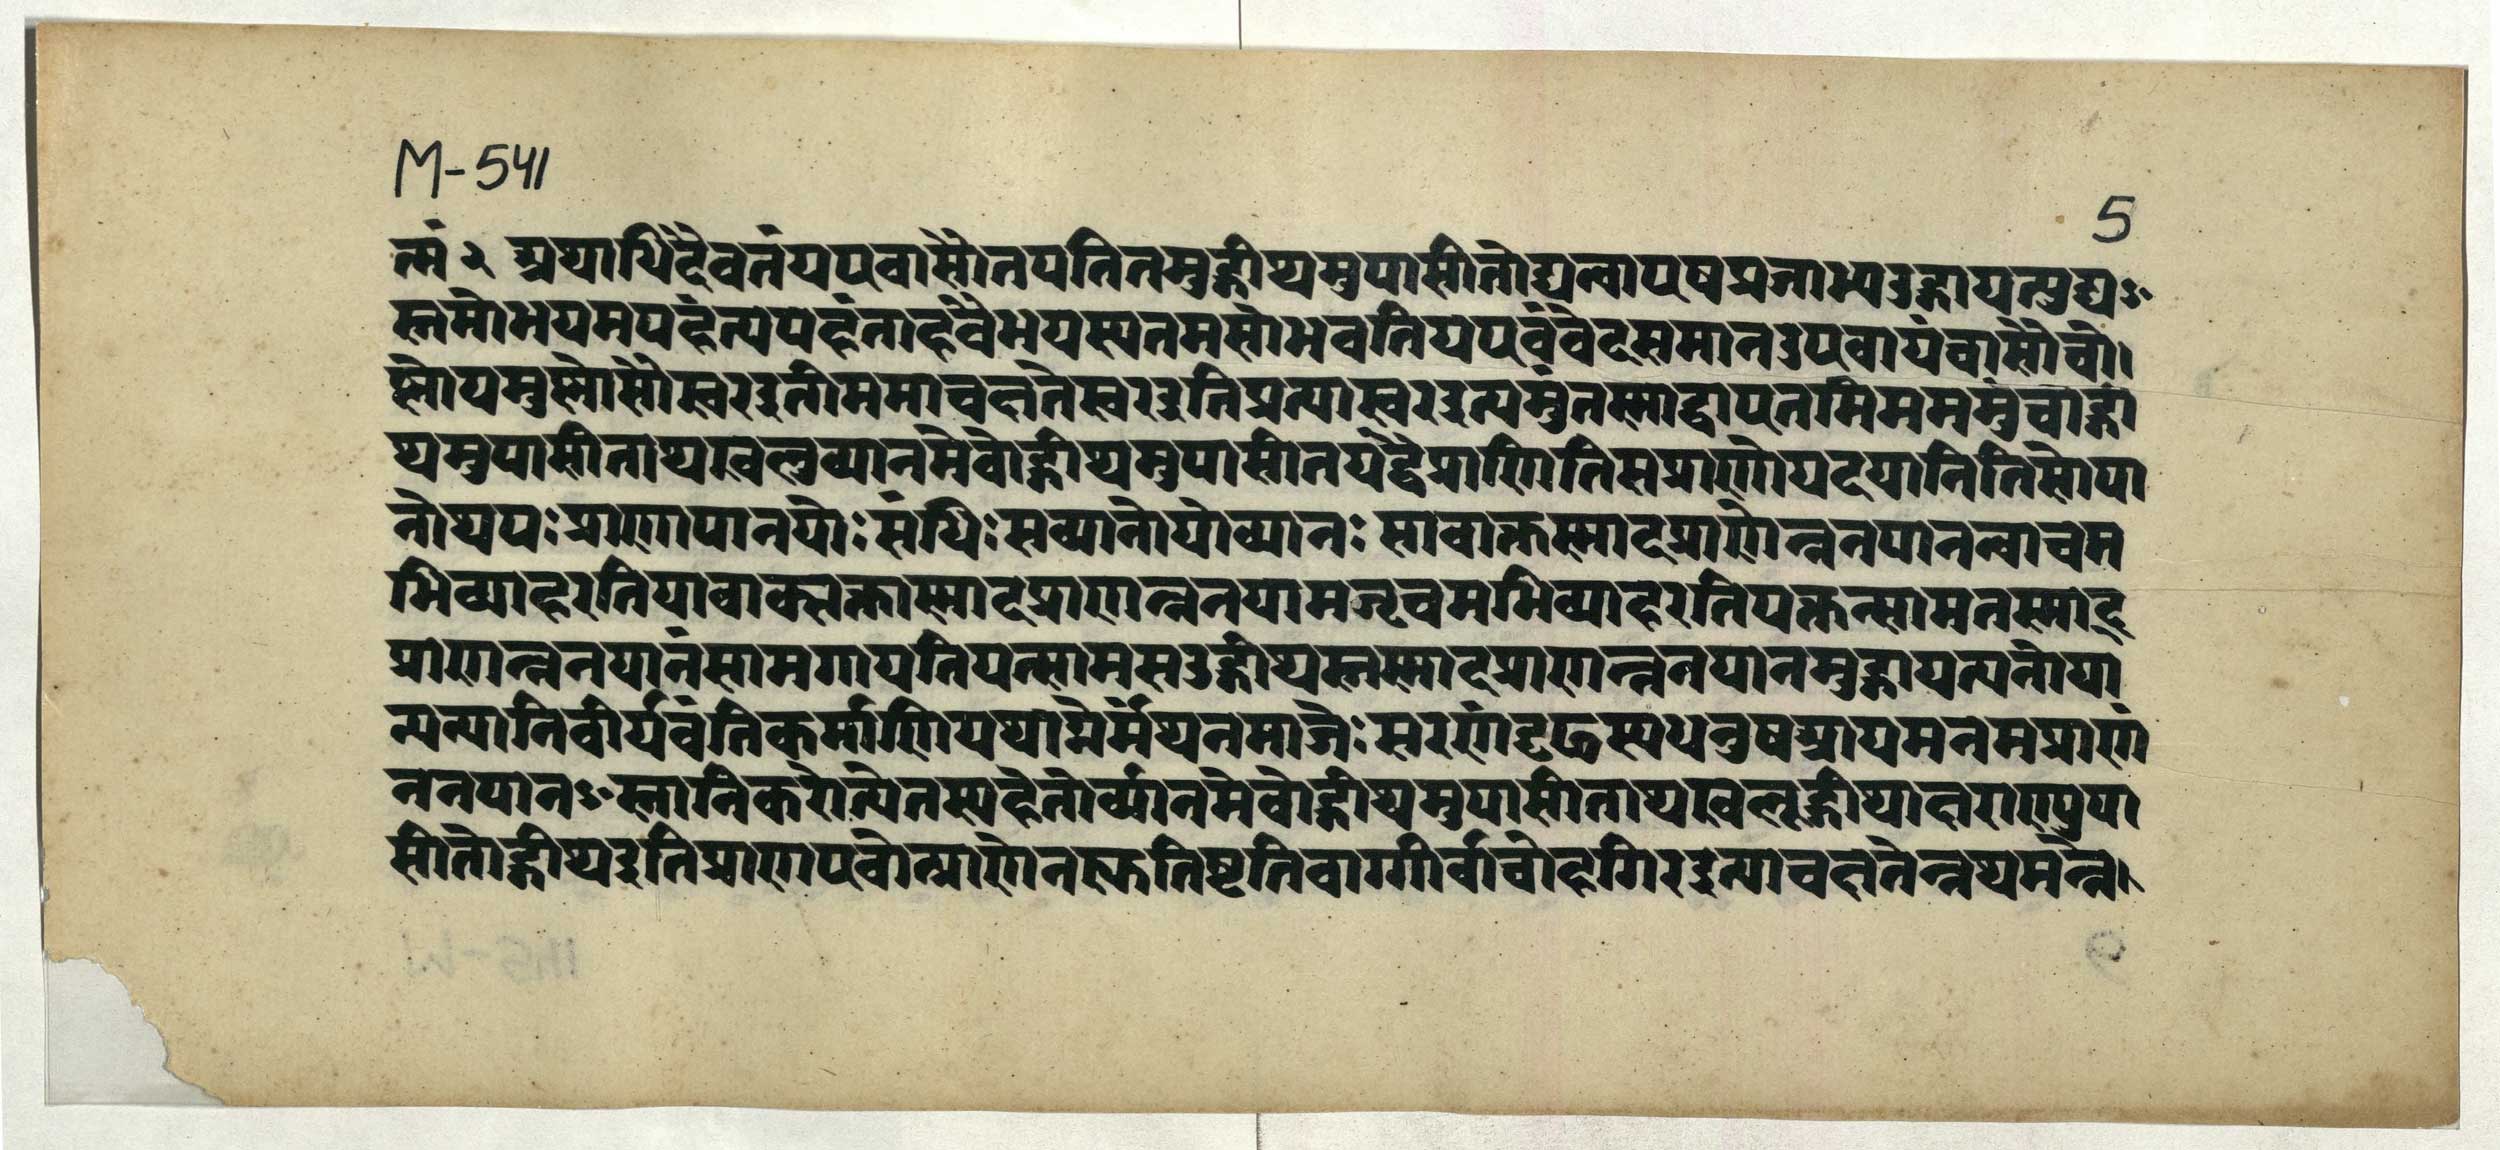 M-541
5
त्मं २ अथाधिदैवतंयएवासौतपतितमुद्गीथमुपासीतोद्यन्वाएषप्रजाभ्यउद्गायत्युद्यꣳ
स्तमोभयमपहंत्यपहंताहवैभयस्यतमसोभवतियएवंवेदसमानउएवायंचासौचो
ष्णोयमुष्णोसौस्वरइतीममाचक्षतेस्वरइतिप्रत्यास्वरइत्यमुंतस्माद्वाएतमिमममुंचोद्गी
थमुपासीताथखलुव्यानमेवोद्गीथमुपासीतयद्वैप्राणितिसप्राणोयदपानितिसोपा
नोथयः प्राणापानयोः संधिः सव्यानोयोव्यानः सावाक्तस्मादप्राणन्ननपानन्वाचम
भिव्याहरतियावाक्सर्क्तस्मादप्राणन्ननपानन्नृचमभिव्याहरतियर्क्तत्सामतस्माद
प्राणन्ननपानंसामगायतियत्सामसउद्गीथस्तस्मादप्राणन्ननपानमुद्गायत्यतोया
न्यन्यानिवीर्यवंतिकर्माणियथाग्नेर्मंथनमाजेः सरणंदृढस्यधनुषआयमनमप्राणं
ननपानꣳस्तानिकरोत्येतस्यहेतोर्व्यानमेवोद्गीथमुपासीताथखलूद्गीथाक्षराण्युपा
सीतोद्गीथइतिप्राणएवोत्प्राणेनह्युत्तिष्ठतिवाग्गीर्वाचोहगिरइत्याचक्षतेन्नथमन्ने